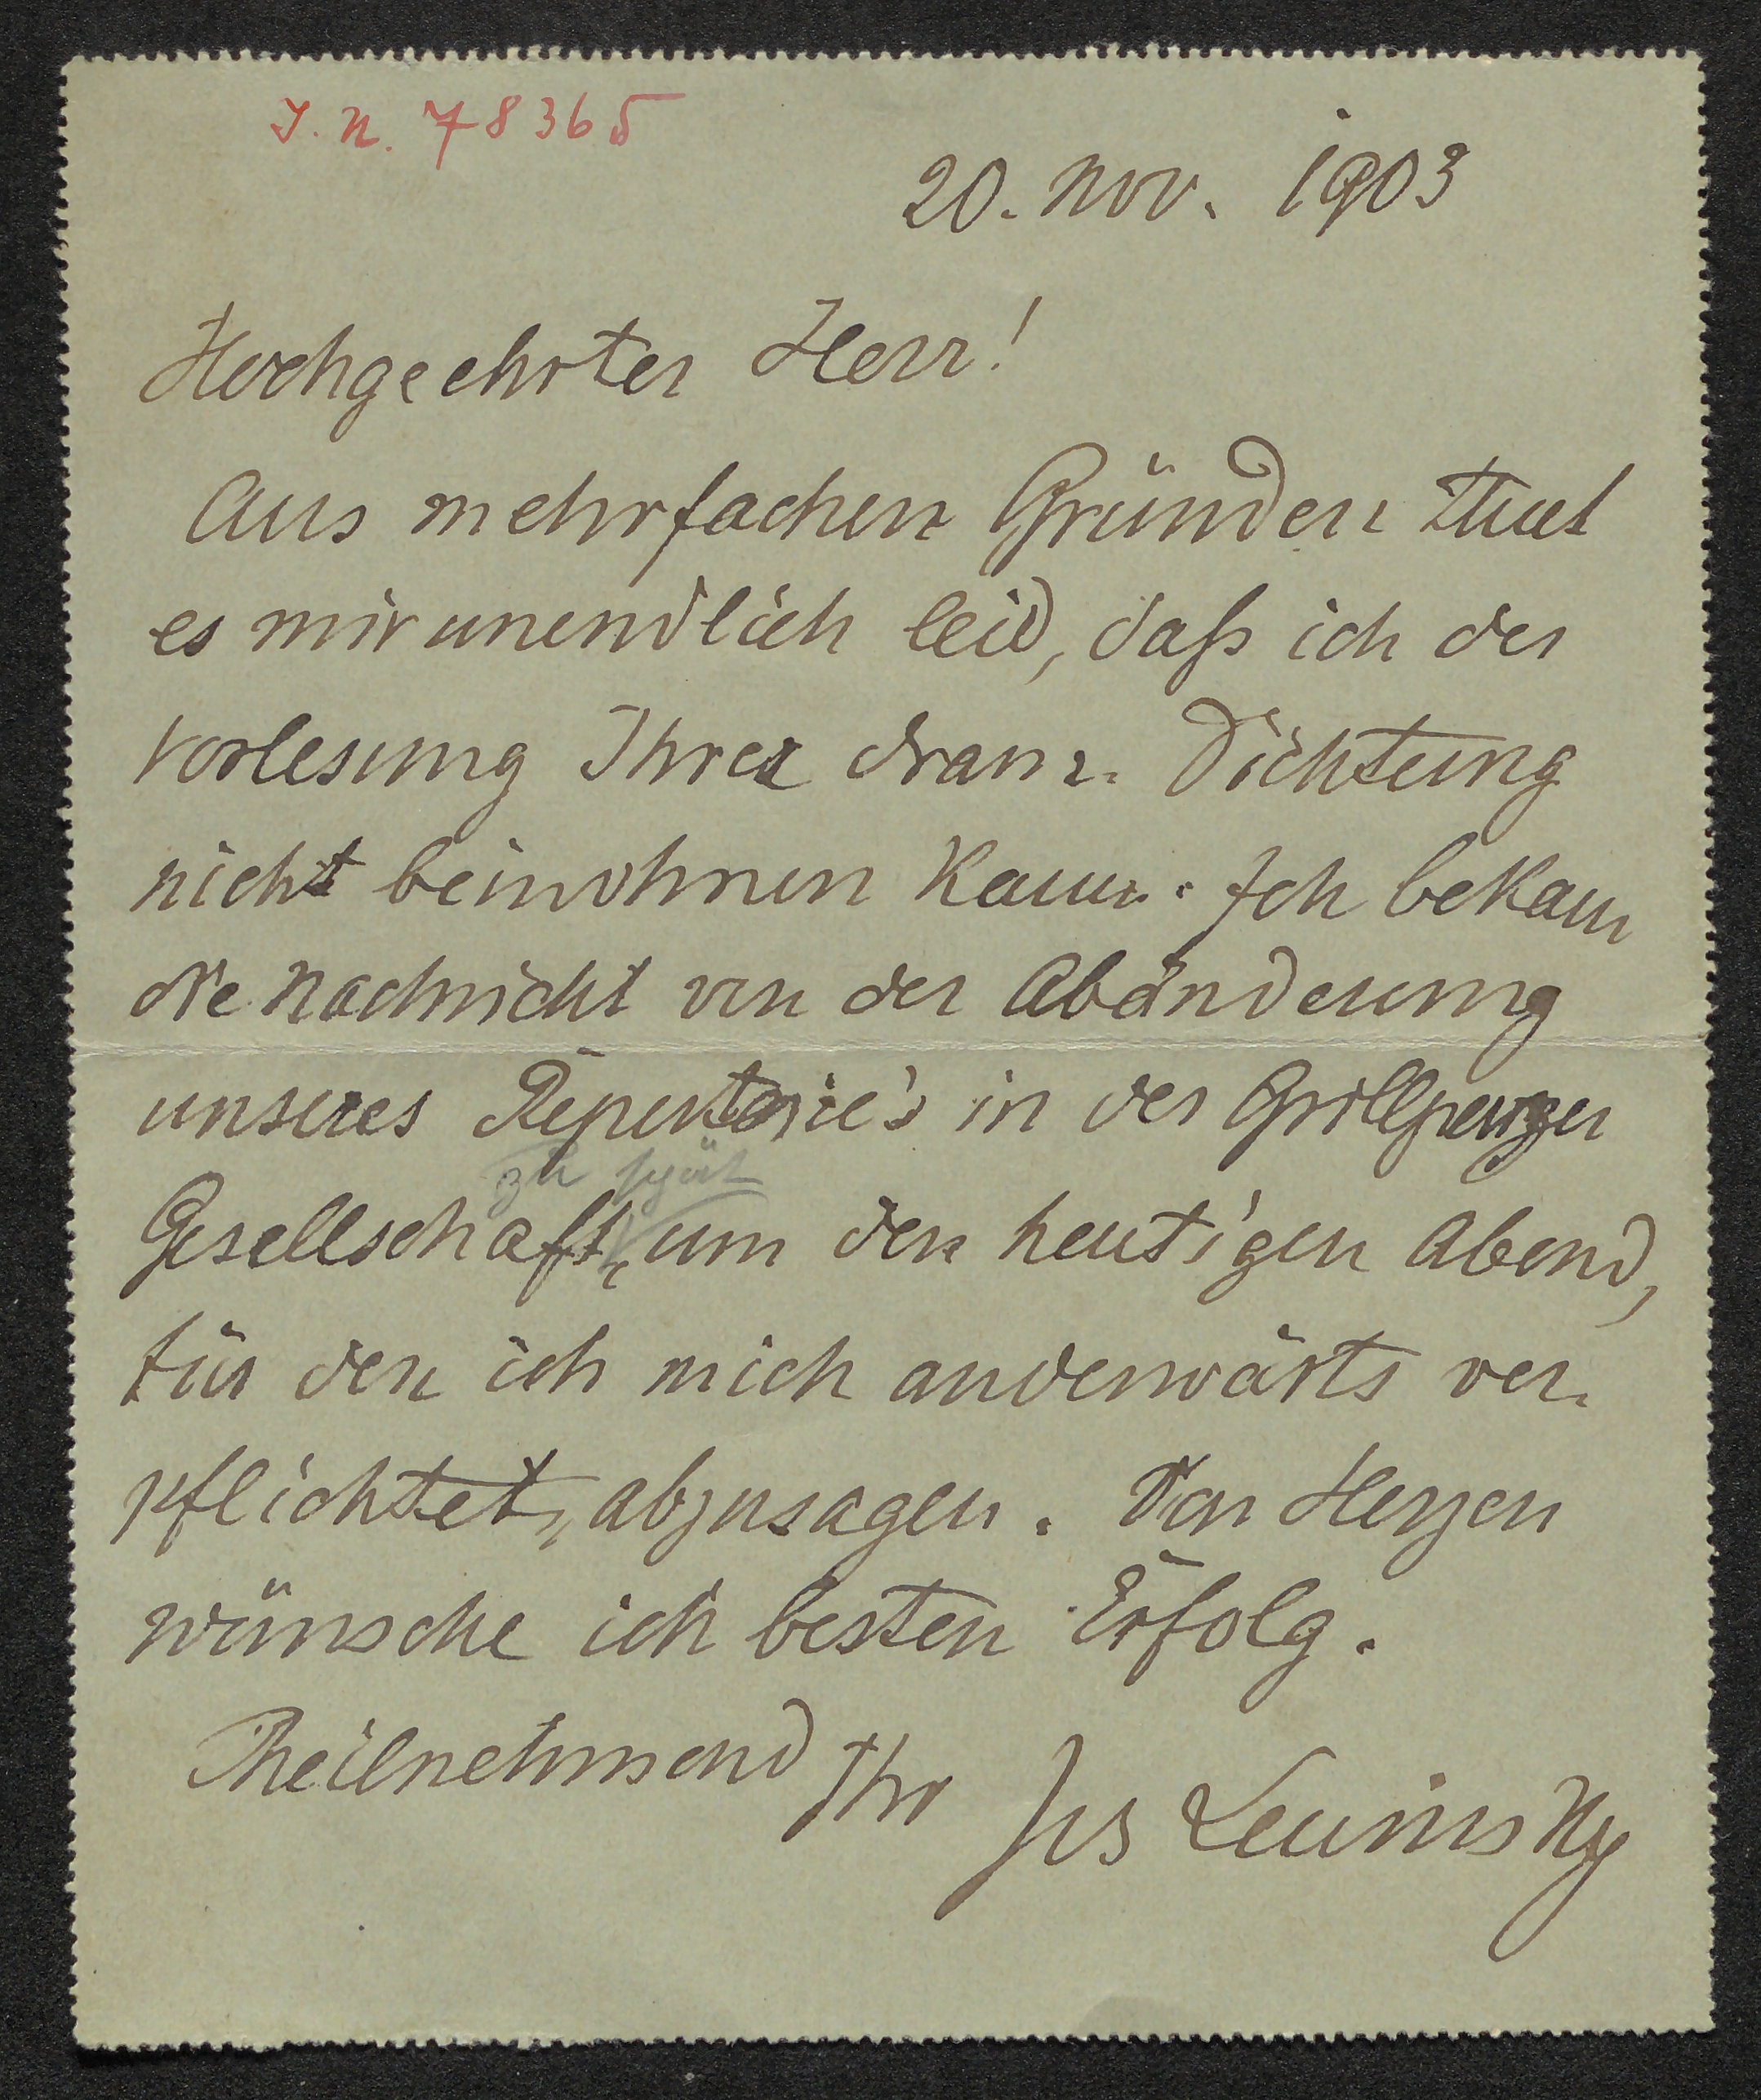 J. N. 78365
20. Nov. 1903
Hochgeehrter Herr!
Aus mehrfachen Gründen thut
es mir unendlich leid, daß ich der
Vorlesung Ihrer dram. Dichtung
nicht beiwohnen kann. Ich bekam
die Nachricht von der Abänderung
unseres Repertoire's in der Grillparzer
zu spät
Gesellschaft, um den heutigen Abend,
für den ich mich anderwärts ver-
pflichtet, abzusagen. Von Herzen
wünsche ich besten Erfolg.
Theilnehmend Ihr Jos Lewinsky